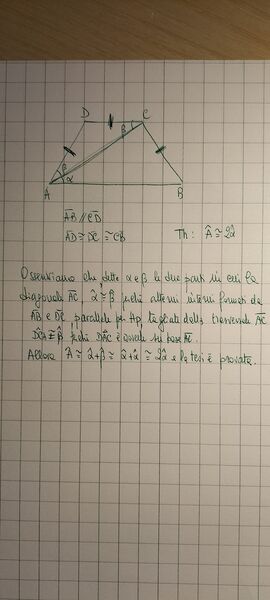 D
C
β
β
α
A
B
AB // CD
AD ≅ DC ≅ CB
Th: Â ≅ 2α̂
Osserviamo che, dette α e β le due parti in cui la
diagonale AC, α̂ ≅ β̂ perché alterni interni formati da
AB e DC parallele per Hp, tagliati dalla trasversale AC
DĈA ≅ β̂ perché DAC è isoscele su base AC.
Allora Â ≅ α̂+β̂ ≅ α̂+α̂ ≅ 2α̂ e la tesi è provata.